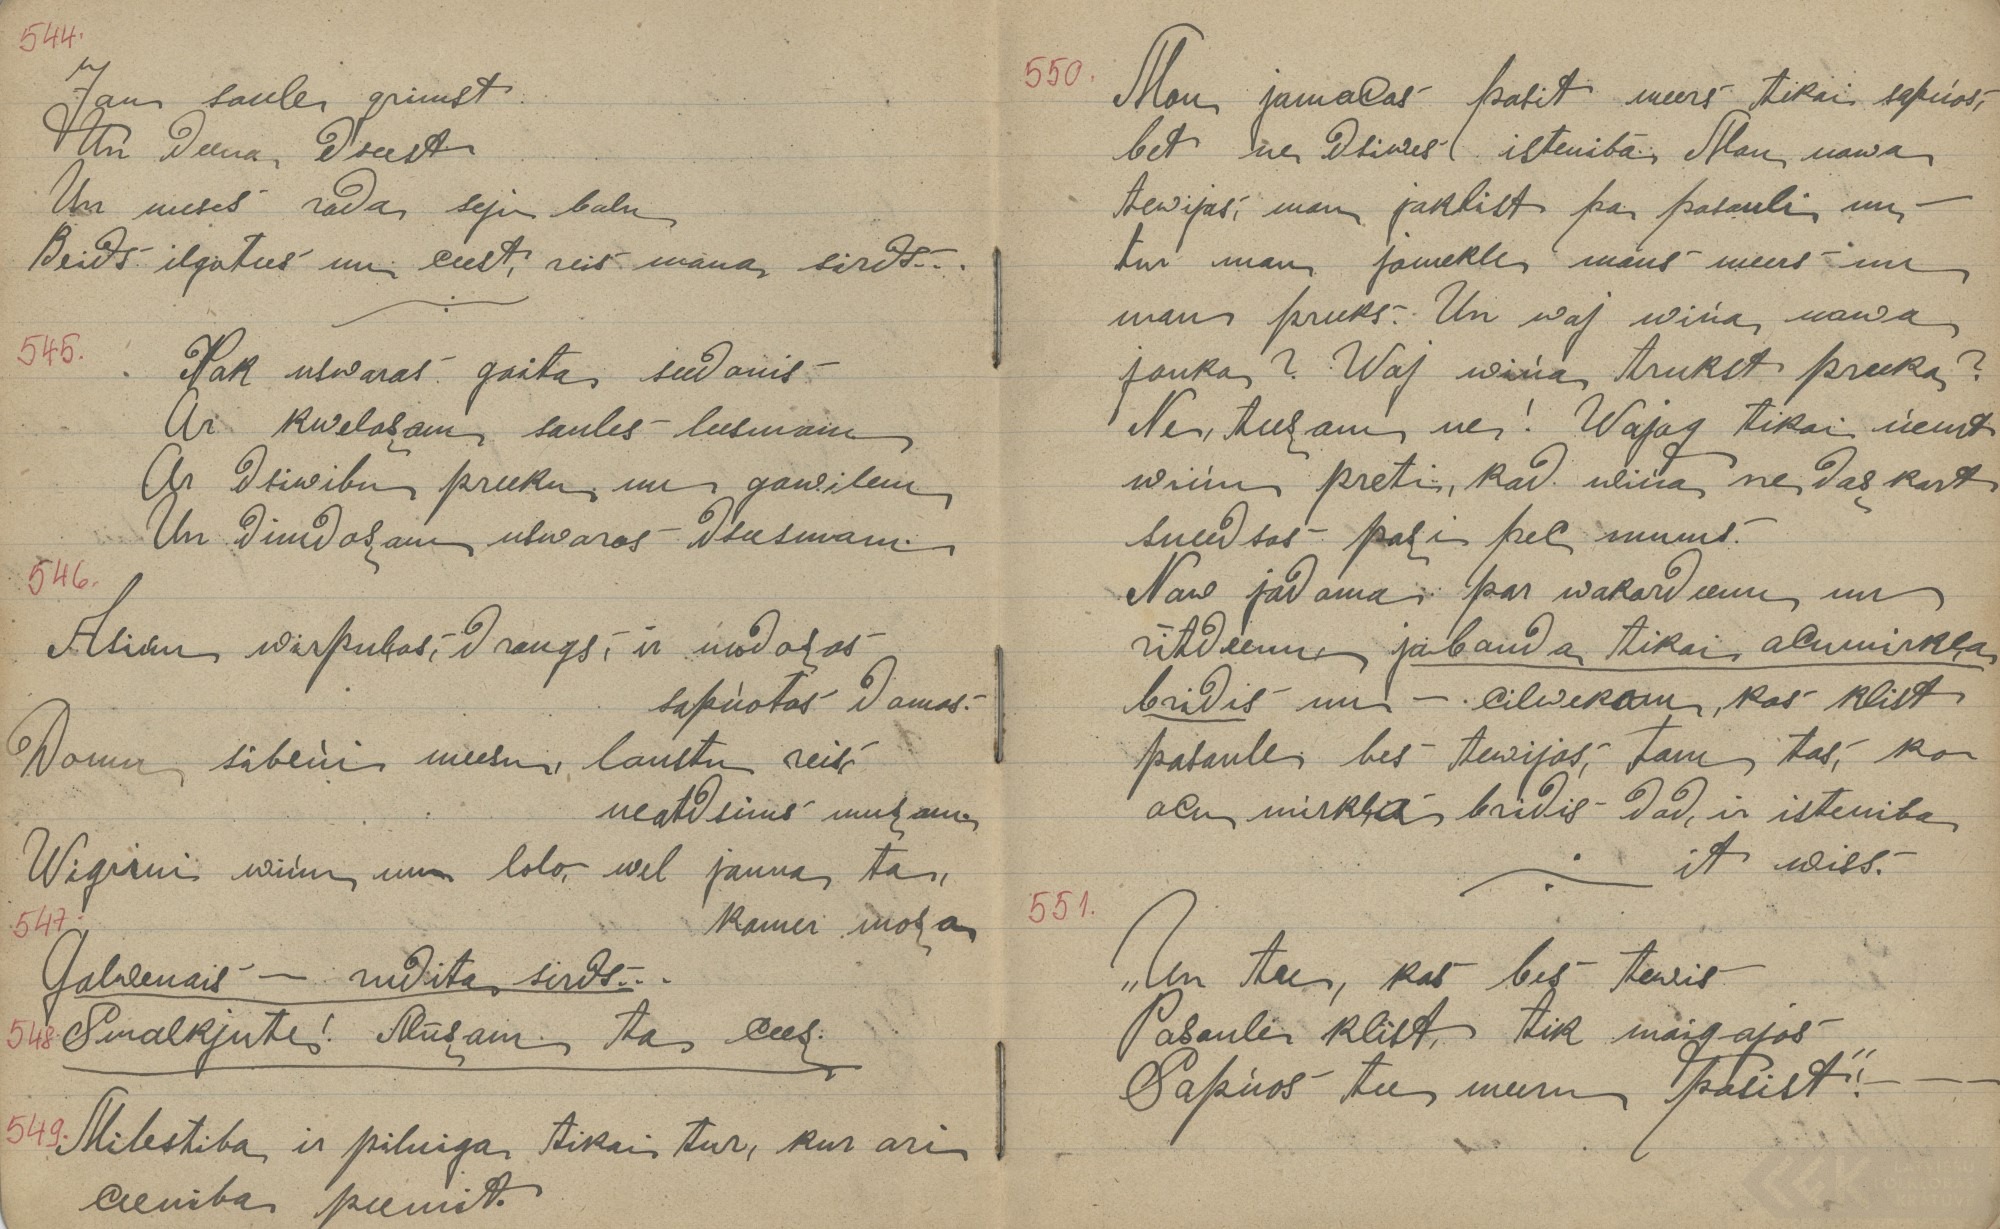 544.
Jau saule grimst
Un deena dseest
Un meess rada seju balu
Beids ilgotees un ceest, reis mana sirds...
545.
Nak uswaras gaita seedonis
Ar kweloşam saules leesmam
Ar dsiwibu preeku un gawilem
Un dimdoşam uswaras dseesmam
546.
Asinu wirpulos, draugs, ir
sapņotas domas.
Domu sibeņi meesu, lauztu reis
neatdsims muşam
Wigrini wiņu un lolo, wel jauna ta,
kamer moşa
547.
Galwenais — rudita sirds...
548. Smalkjute! Muşam ta cees.
549. Milestiba ir pilniga tikai tur, kur ari
ceeniba peemit.
550.
Man jamacas pasit meers tikai sapņos,
bet ne dsiwes istenibā. Man nawa
tewijas, man jaklist pa pasauli un —
tur man jamekle mans meers un
mans preeks. Un waj wiņa nawa
jauka? Waj wiņa trukst preeka?
Ne, teeşam ne! Wajag tikai ņemt
wiņu preti, kad wiņa nedaşkart
sneedsas paşi pec mums.
Naw jadoma par wakardeenu un
rītdeenu, jabauda tikai acumirkļa
bridis un — cilwekam, kas klist
pasaule bes tewijas, tam tas, ko
acu mirkļa bridis dod, ir isteniba
it wiss.
551.
„Un tee, kas bes tewis
Pasaule klist, tik maigajos
Sapņos tee meeru pasist“! — — —